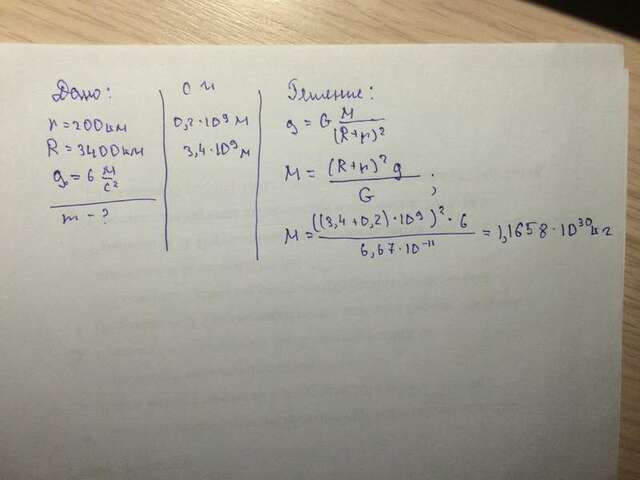 Дано:
r = 200 км
R = 3400 км
g = 6 м/с²
m - ?
СИ
0,2·10⁹ м
3,4·10⁹ м
Решение:
g = G M/(R+r)²
M = (R+r)² g / G ;
M = ((3,4+0,2)·10⁹)²·6 / 6,67·10⁻¹¹ = 1,1658·10³⁰ кг